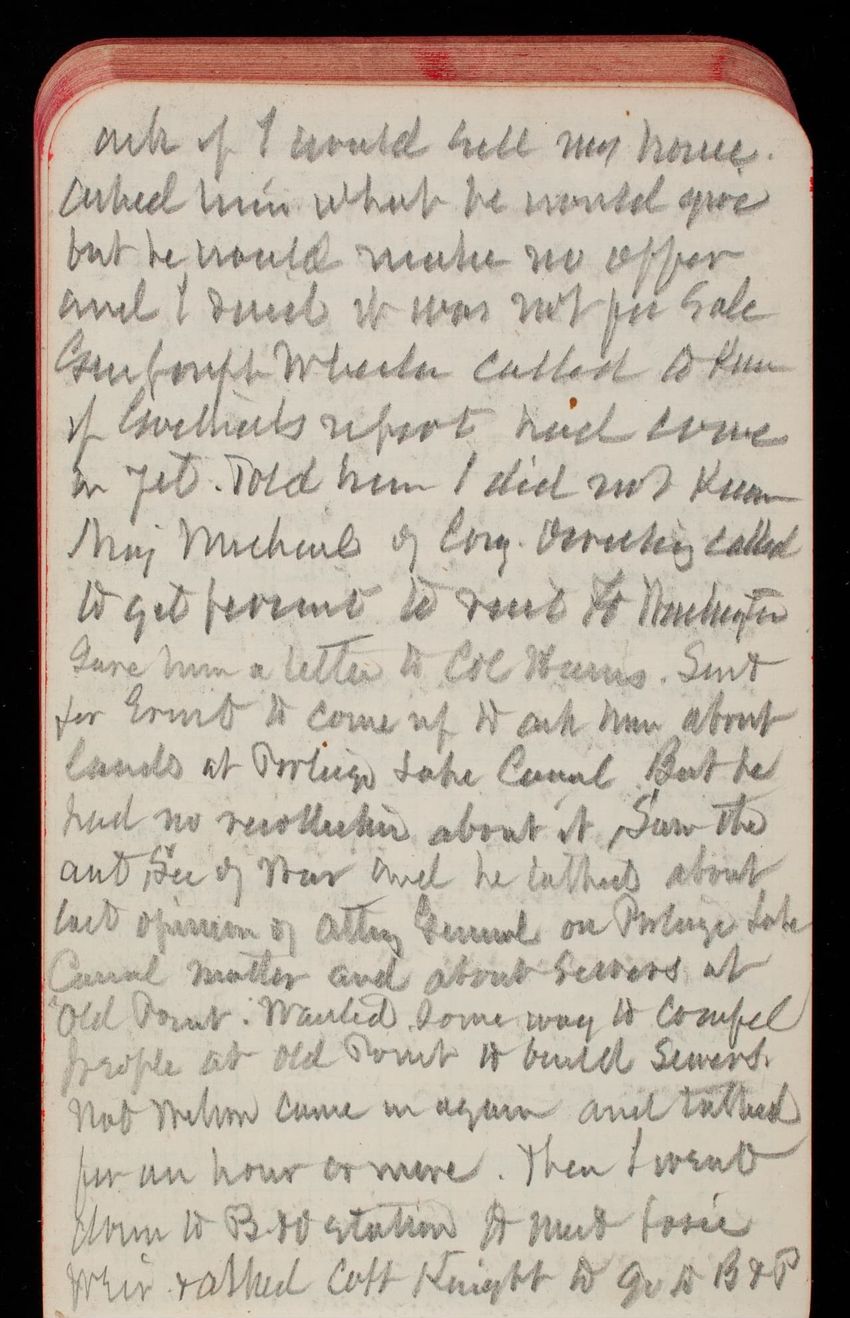 ask if I would sell my house.
Asked him what he would give
but he would make no offer
and I said it was not for sale
Genl Joseph Wheeler called to know
if report had come
in yet. Told him I did not know
Maj Michael of called
to get permit to visit Ft Washington
Gave him a letter to Col. Sent
for Ernst to come up to ask him about
lands at Portage Lake Canal But he
had no recollection about it, Saw the
asst, Sec of War and he talked about
last opinion of Atty General on Portage Lake
Canal matter and about sewers at
Old Point. Wanted some way to compel
people at Old Point to build sewers.
Nat came in again and talked
for an hour or more. Then I went
down to B & O station to meet Josie
& asked Capt Knight to go to B & P